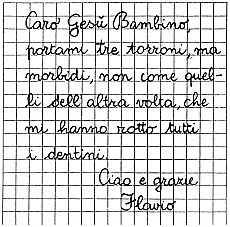 Caro Gesŭ Bambino,
portami tre torroni, ma
morbidi, non come quel-
li dell'altra volta, che
mi hanno rotto tutti
i dentini.
Ciao e grazie
Flavio